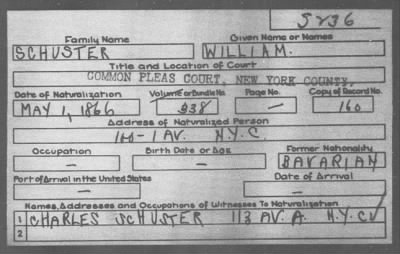 S236
Family Name Given Name or Names
SCHUSTER WILLIAM.
Title and Location of Court
COMMON PLEAS COURT, NEW YORK COUNTY.
Date of Naturalization Volume or Bundle No. Page No. Copy of Record No.
MAY 1, 1866 338 — 160
Address of Naturalized Person
1 AV. N.Y.C.
Occupation Birth Date or Age Former Nationality
— — BAVARIAN
Port of Arrival in the United States Date of Arrival
— —
Names, Addresses and Occupations of Witnesses To Naturalization
1 CHARLES SCHUSTER 113 AV. A. N.Y.C.
2